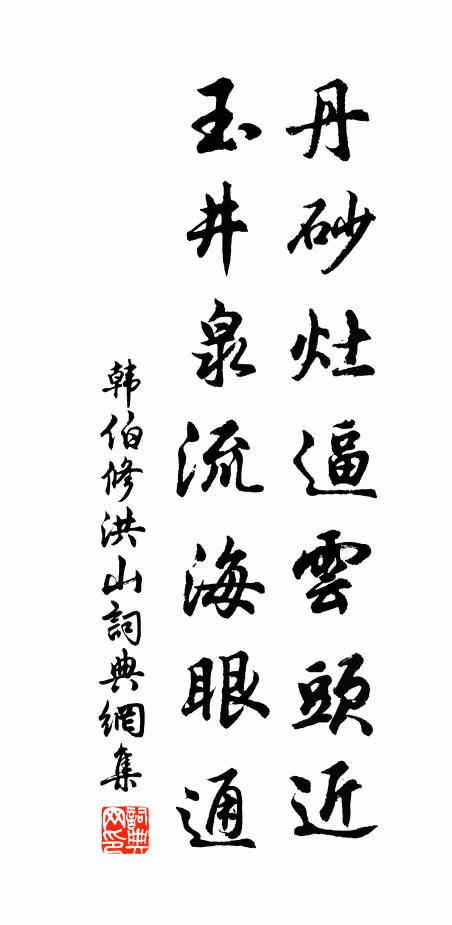 丹砂灶逼雲頭近
玉井泉流海眼通
韩伯修洪山詞典網集
詞典网印